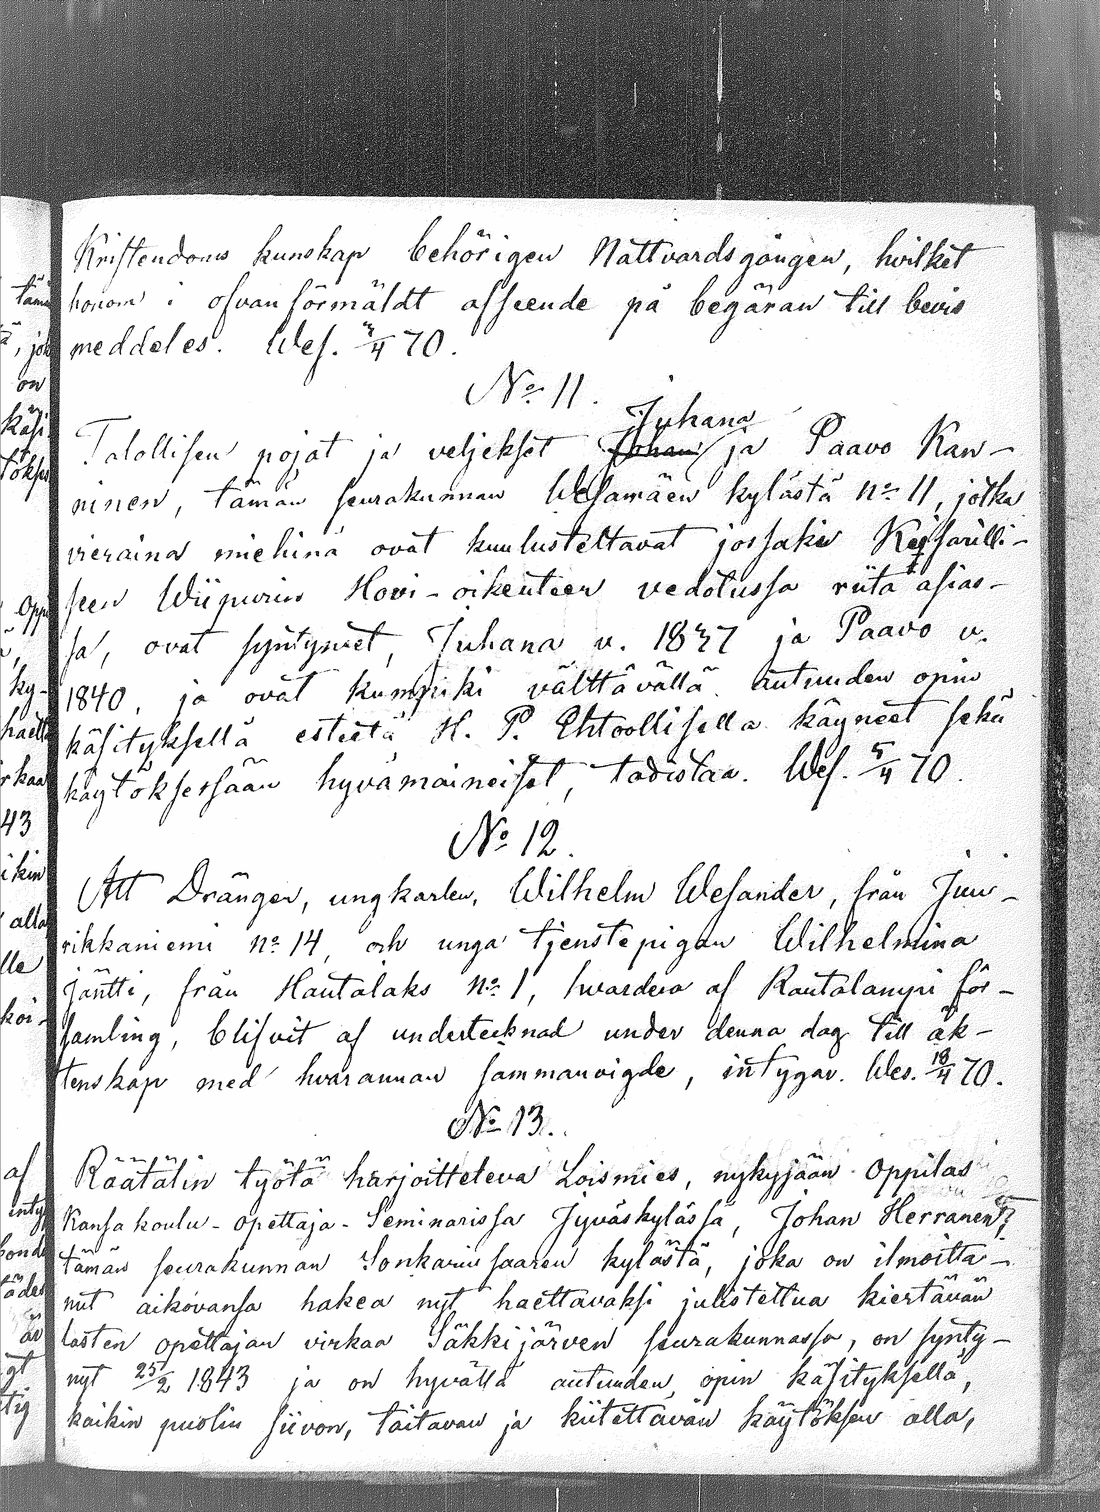 Kristendoms kunskap behörigen Nattvardsgången, hvilket
honom i ofvanförmäldt afseende på begäran till bevis
meddeles. Wes. 3/4 70.
No 11.
Juhana
Talollisen pojat ja veljekset Johan ja Paavo Kan-
ninen, tämän seurakunnan Wesamäen kylästä no 11, jotka
vieraina miehinä ovat kuulusteltavat jossakin Keisarilli-
seen Wiipurin Hovi-oikeuteen vedotussa riita asias-
sa, ovat syntyneet, Juhana v. 1837 ja Paavo v.
1840, ja ovat kumpiki välttävällä autuuden opin
käsityksellä esteetä H. P. Ehtoollisella käyneet sekä
käytöksessään hyvämaineiset, todistaa. Wes. 5/4 70.
No 12.
Att Drängen, ungkarlen, Wilhelm Wesander, från Juu-
rikkaniemi no 14, och unga tjenstepigan Wilhelmina
Jäntti, från Hautalaks no 1, hvardera af Rautalampi för-
samling, blifvit af undertecknad under denna dag till äk-
tenskap med hvarannan sammanvigde, intygar. Wes. 18/4 70.
No 13.
Räätälin työtä harjoitteleva Loismies, nykyjään oppilas
Kansakoulu-opettaja-Seminarissa Jyväskylässä, Johan Herranen,
tämän seurakunnan Sonkarinsaaren kylästä, joka on ilmoitta-
nut aikovansa hakea nyt haettavaksi julistettua kiertävän
lasten opettajan virkaa Säkkijärven seurakunnassa, on synty-
nyt 25/2 1843 ja on hyvällä autuuden opin käsityksellä,
kaikin puolin siivon, taitavan ja kiitettävän käytöksen alla,